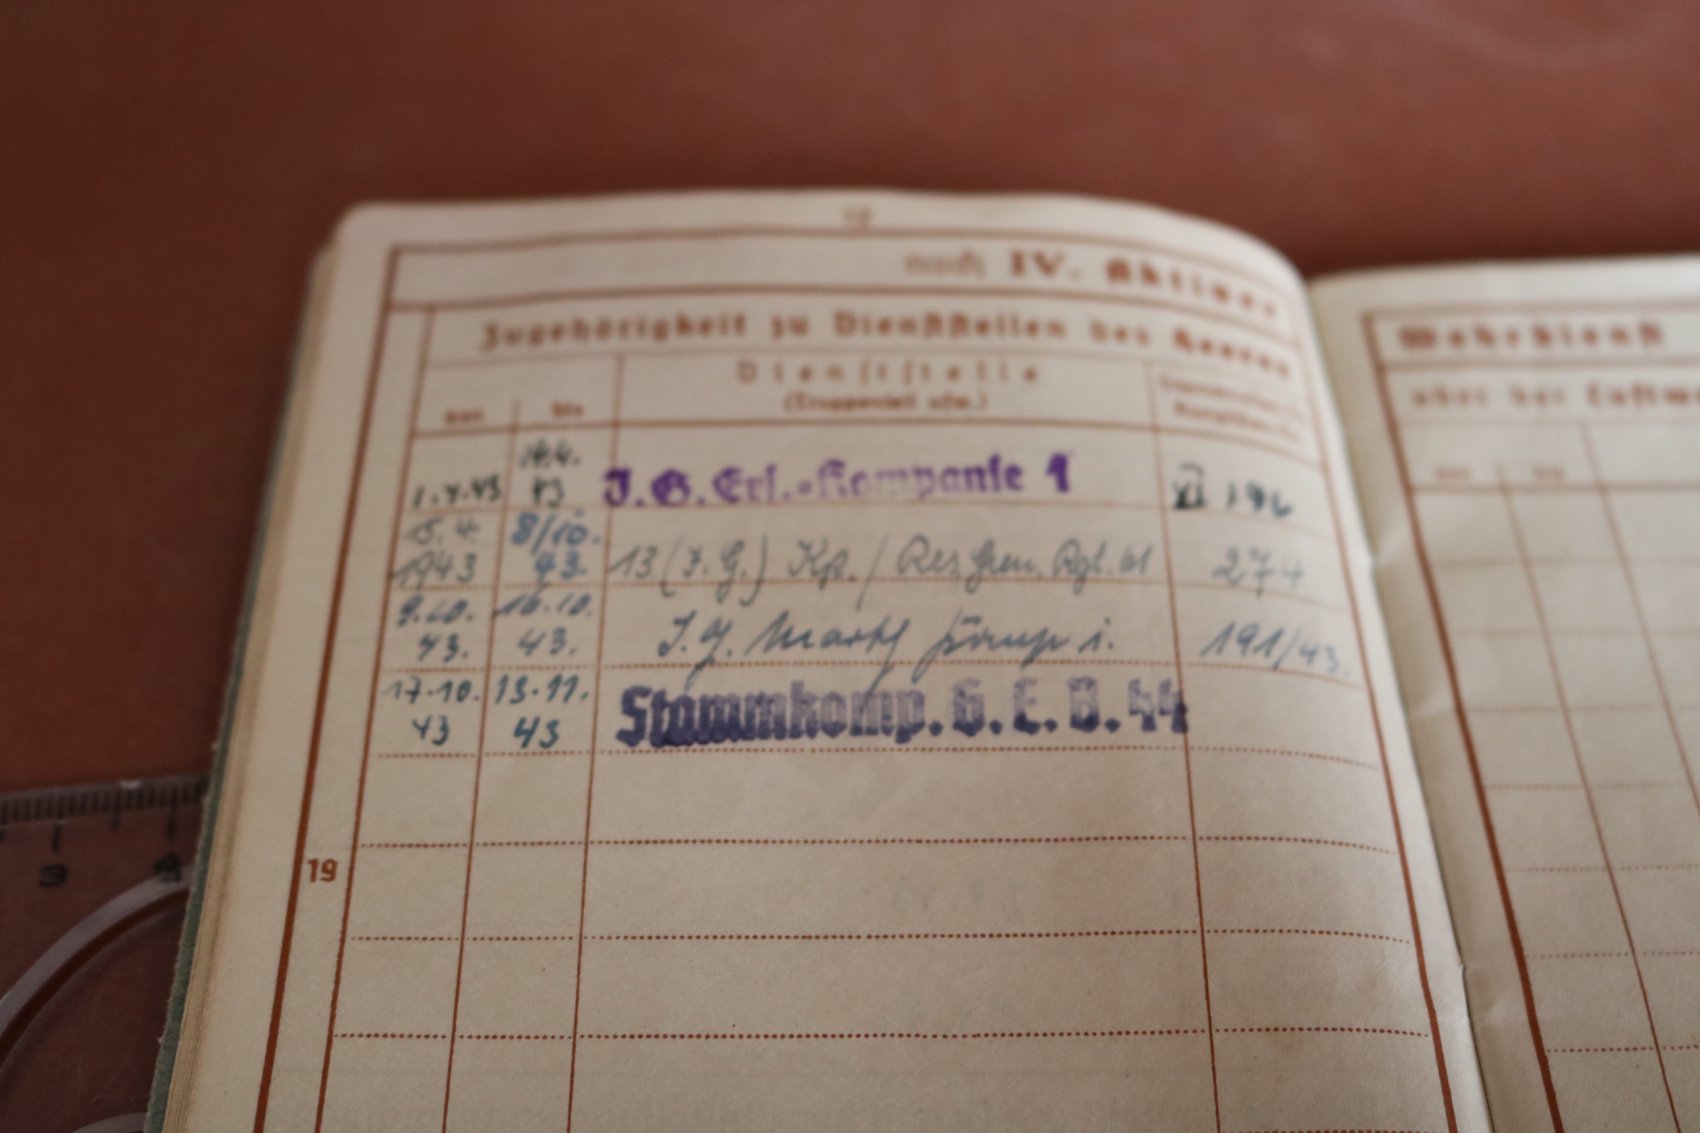 noch IV. Aktiver
Zugehörigkeit zu Dienststellen des Heeres
Dienststelle
(Truppenteil usw.)
von bis
14.4.
1.4.43 43 J.G.Ers.-Kompanie 1 XI
15.4. 8/10.
1943 43. 13 (J.G.) Kp. / Res. Gren. Rgt. 274
9.10. 16.10.
43. 43. J.G. 191/43.
17.10. 13.11.
43 43 Stammkomp. G.E.B. 44
19
Wehrdienst
oder der Luftw
3 4